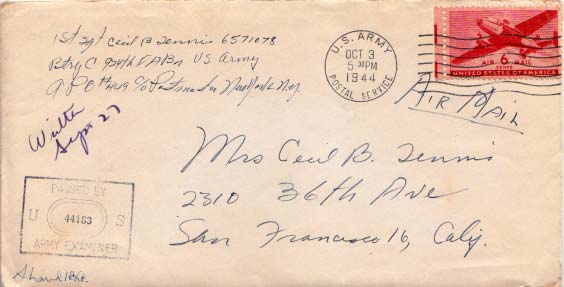 1st Sgt Cecil B Tennis 6571078
Btry C 924th F.A.Bn US Army
APO #419 c/o Postmaster New York, N.Y.
U.S. ARMY
OCT 3
5 30 PM
1944
POSTAL SERVICE
AIR 6 MAIL
CENTS
UNITED STATES OF AMERICA
AIR MAIL
Written
Sept 27
Mrs Cecil B. Tennis
2310 36th Ave
San Francisco 16, Calif.
PASSED BY
U 44183 S
ARMY EXAMINER